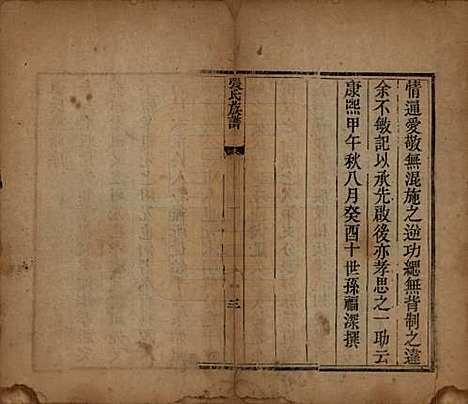 情通愛敬無混施之逆功緦無背制之違
余不敏記以承先啟後亦孝思之一助云
康熙甲午秋八月癸酉十世孫福深撰
張氏族譜
三